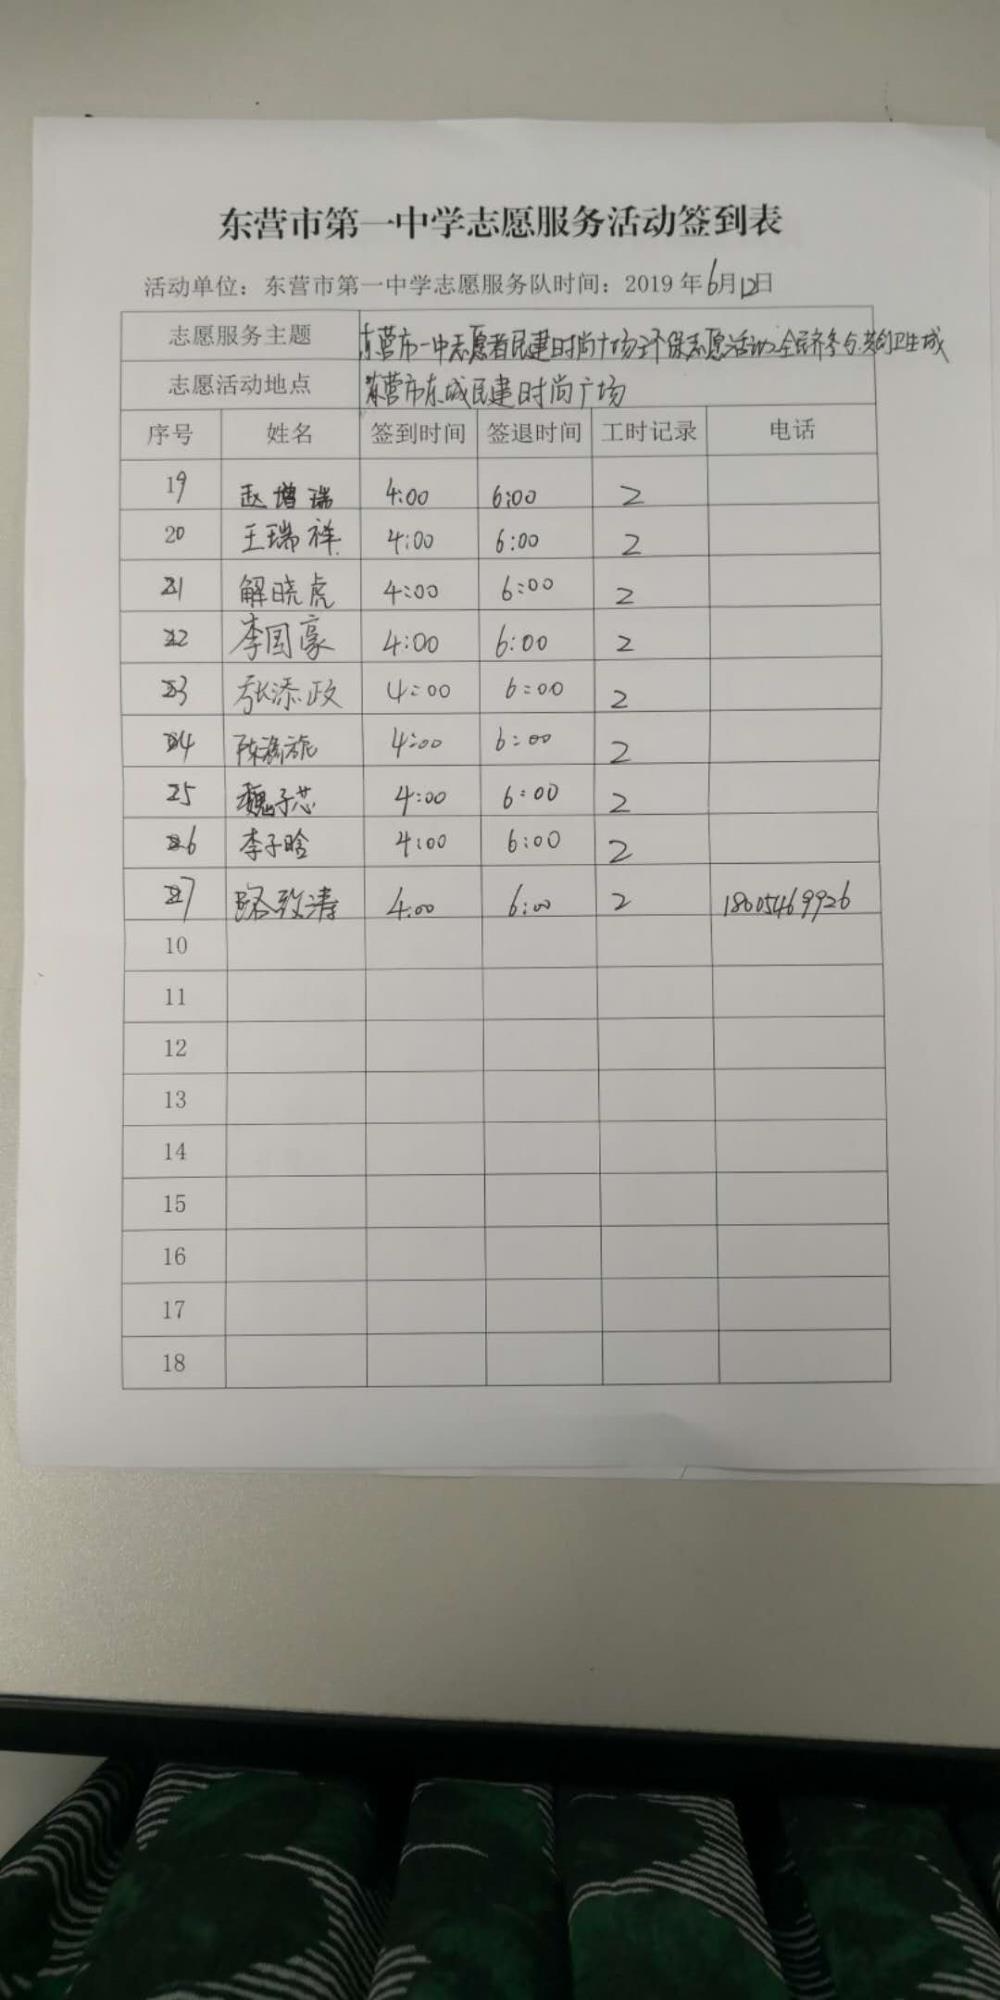 东营市第一中学志愿服务活动签到表
活动单位：东营市第一中学志愿服务队时间：2019年6月12日
志愿服务主题 东营市一中志愿者民建时尚广场环保志愿活动之全民齐参与,共创卫生城
志愿活动地点 东营市东城民建时尚广场
序号 姓名 签到时间 签退时间 工时记录 电话
19 赵增瑞 4:00 6:00 2
20 王瑞祥 4:00 6:00 2
21 解晓虎 4:00 6:00 2
22 李国豪 4:00 6:00 2
23 张添政 4:00 6:00 2
24 陈 4:00 6:00 2
25 魏子芯 4:00 6:00 2
26 李子晗 4:00 6:00 2
27 路致涛 4:00 6:00 2 18605469926
10
11
12
13
14
15
16
17
18